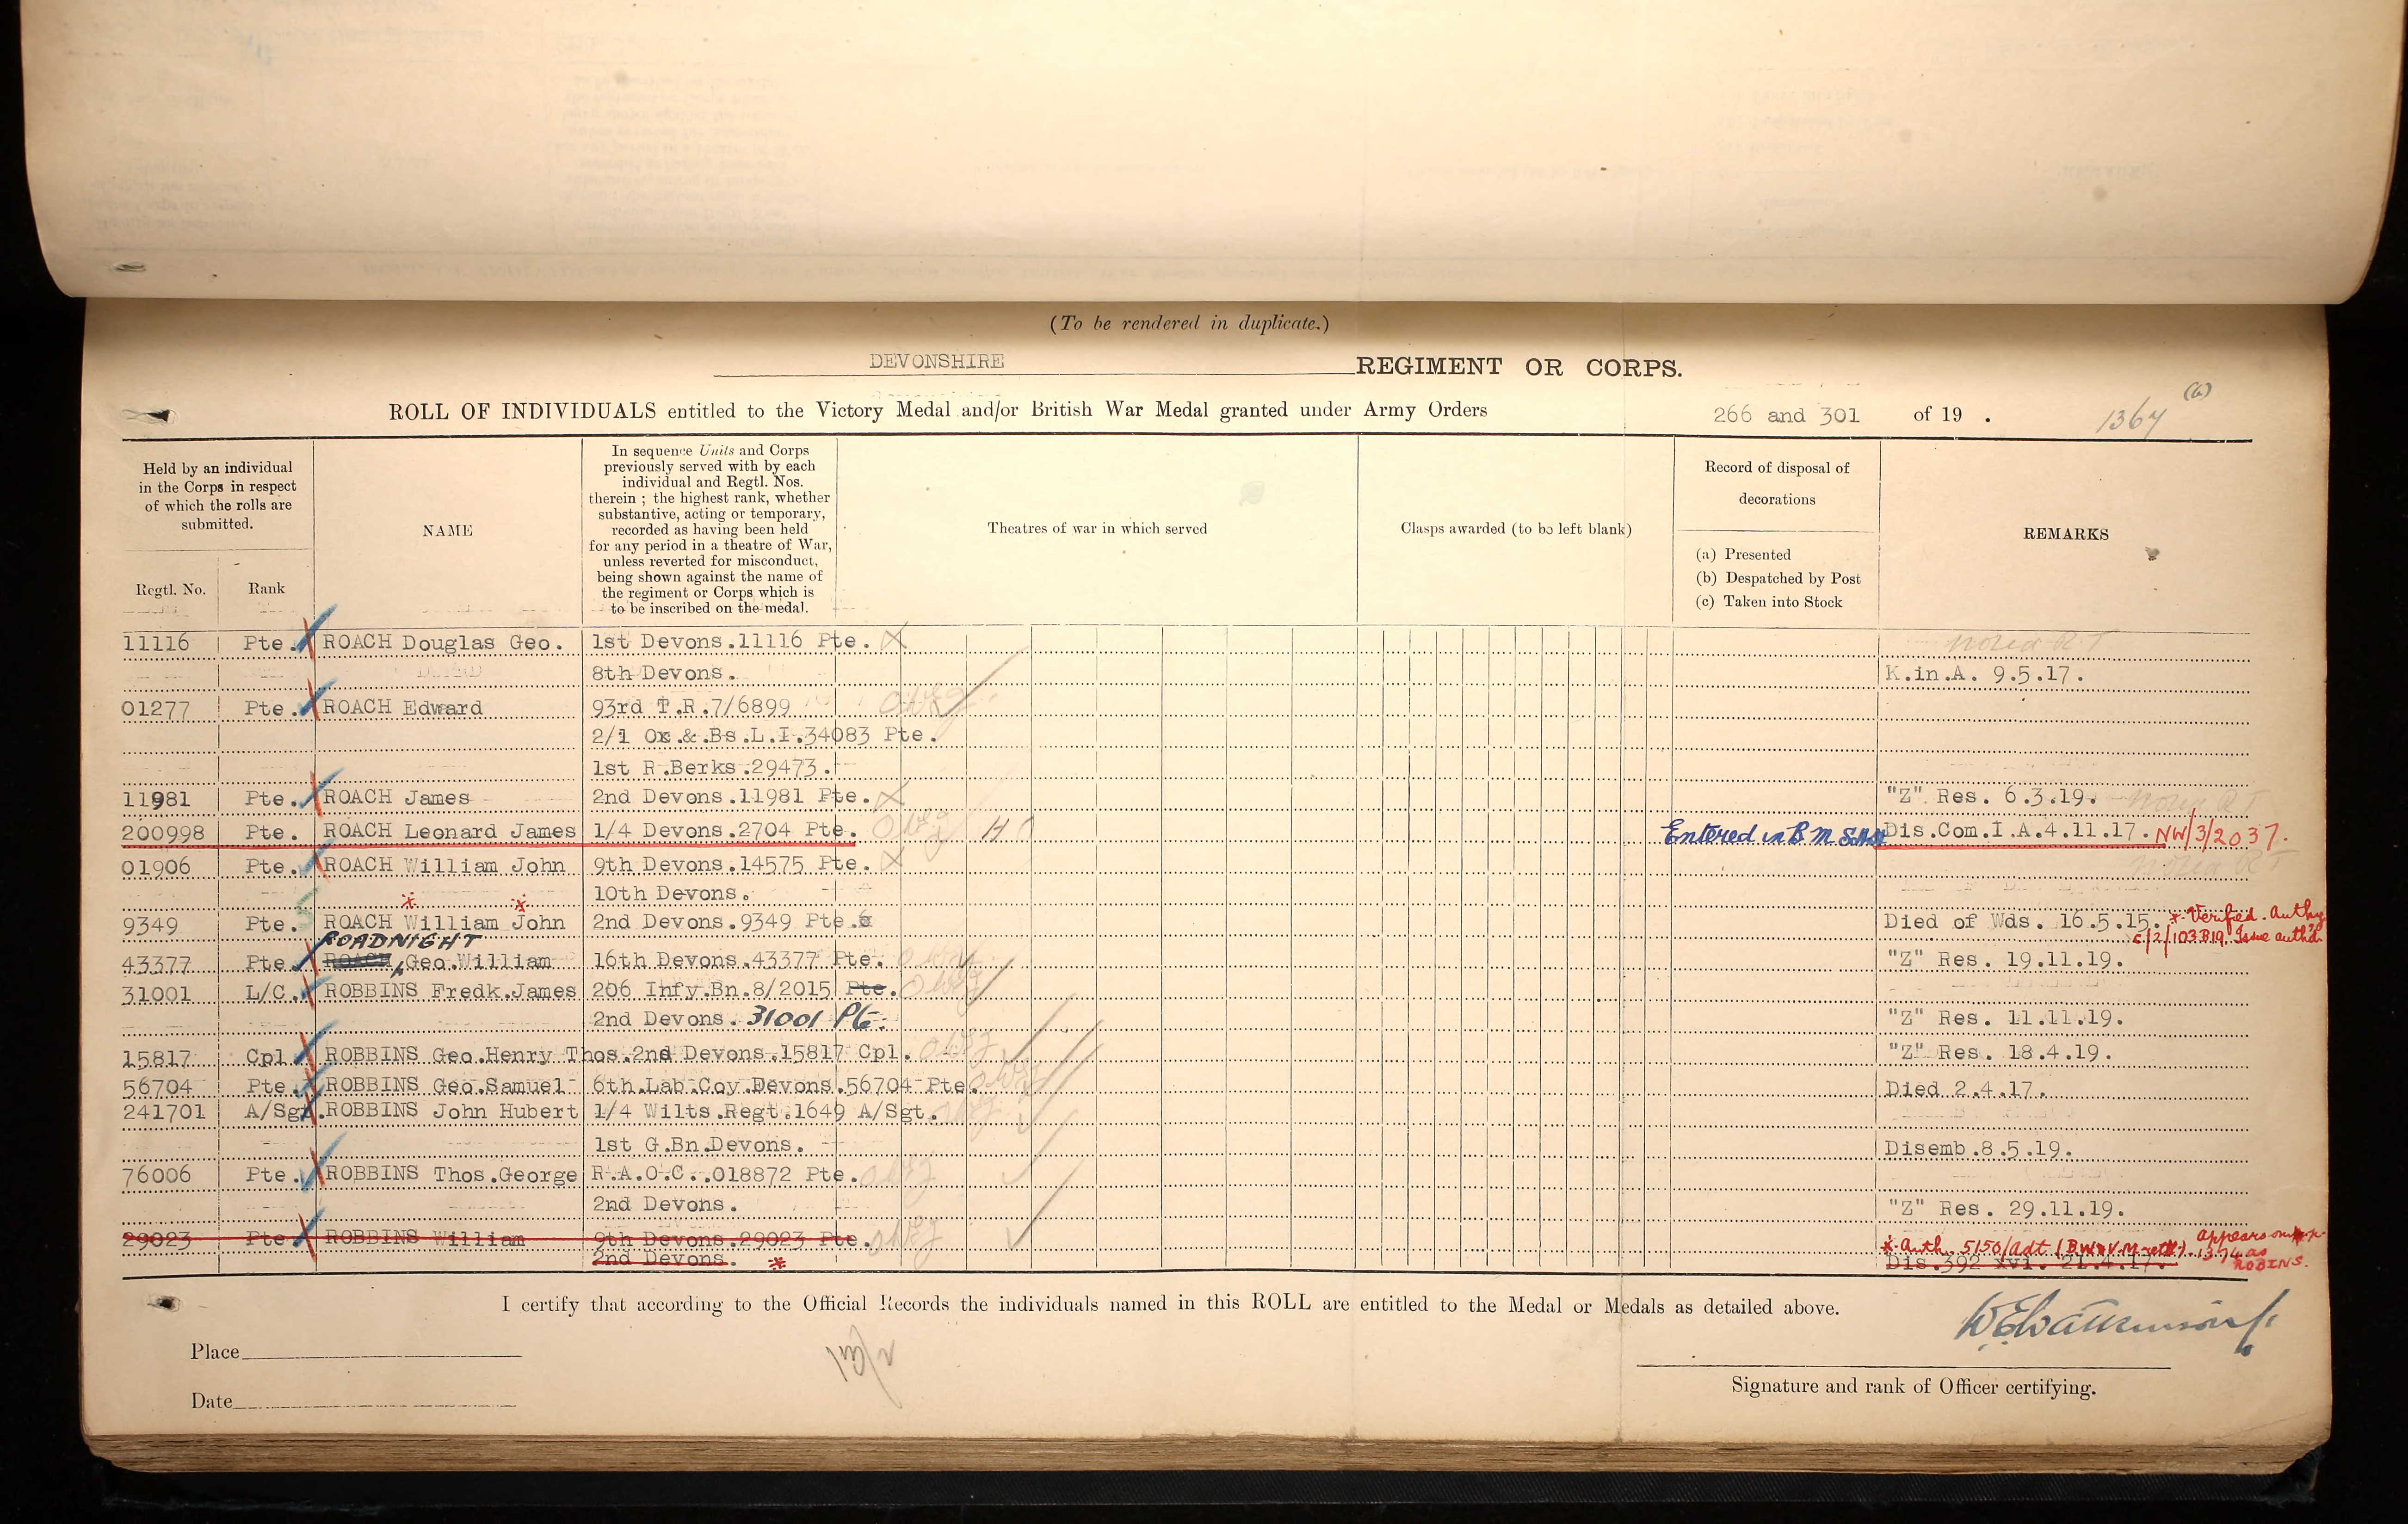 (To be rendered in duplicate.)
DEVONSHIRE REGIMENT OR CORPS.
(a)
ROLL OF INDIVIDUALS entitled to the Victory Medal and/or British War Medal granted under Army Orders 266 and 301 of 19 . 1367
Held by an individual in the Corps in respect of which the rolls are submitted.
Regtl. No.
Rank
NAME
In sequence Units and Corps
previously served with by each
individual and Regtl. Nos.
therein ; the highest rank, whether
substantive, acting or temporary,
recorded as having been held
for any period in a theatre of War,
unless reverted for misconduct,
being shown against the name of
the regiment or Corps which is
to be inscribed on the medal.
Theatres of war in which served
Clasps awarded (to be left blank)
Record of disposal of
decorations
(a) Presented
(b) Despatched by Post
(c) Taken into Stock
REMARKS
11116 Pte. ROACH Douglas Geo. 1st Devons.11116 Pte.
8th Devons. K.in.A. 9.5.17.
01277 Pte. ROACH Edward 93rd T.R.7/6899
2/1 Ox.&.Bs.L.I.34083 Pte.
1st R.Berks.29473.
11981 Pte. ROACH James 2nd Devons.11981 Pte. "Z" Res. 6.3.19.
200998 Pte. ROACH Leonard James 1/4 Devons.2704 Pte. H Entered in B M Dis.Com.I.A.4.11.17. NW/3/2037.
01906 Pte. ROACH William John 9th Devons.14575 Pte.
10th Devons.
9349 Pte. ROACH William John 2nd Devons.9349 Pte. Died of Wds. 16.5.15. * Verified. Authy
c/2/103B19. Issue authd.
ROADNIGHT
43377 Pte. ROACH, Geo.William 16th Devons.43377 Pte. "Z" Res. 19.11.19.
31001 L/C. ROBBINS Fredk.James 206 Infy.Bn.8/2015 Pte.
2nd Devons. 31001 Pte. "Z" Res. 11.11.19.
15817 Cpl. ROBBINS Geo.Henry Thos.2nd Devons.15817 Cpl. "Z" Res. 18.4.19.
56704 Pte. ROBBINS Geo.Samuel 6th.Lab.Coy.Devons.56704 Pte. Died 2.4.17.
241701 A/Sgt. ROBBINS John Hubert 1/4 Wilts.Regt.1649 A/Sgt.
1st G.Bn.Devons. Disemb.8.5.19.
76006 Pte. ROBBINS Thos.George R.A.O.C..018872 Pte.
2nd Devons. "Z" Res. 29.11.19.
29023 Pte. ROBBINS William 9th Devons.29023 Pte.
* Auth. 5150/Adt (BW&V.M. retd) appears on p. 1374 as ROBINS.
2nd Devons. * Dis.392 xvi. 21.4.17.
I certify that according to the Official Records the individuals named in this ROLL are entitled to the Medal or Medals as detailed above.
Place
Date
Signature and rank of Officer certifying.